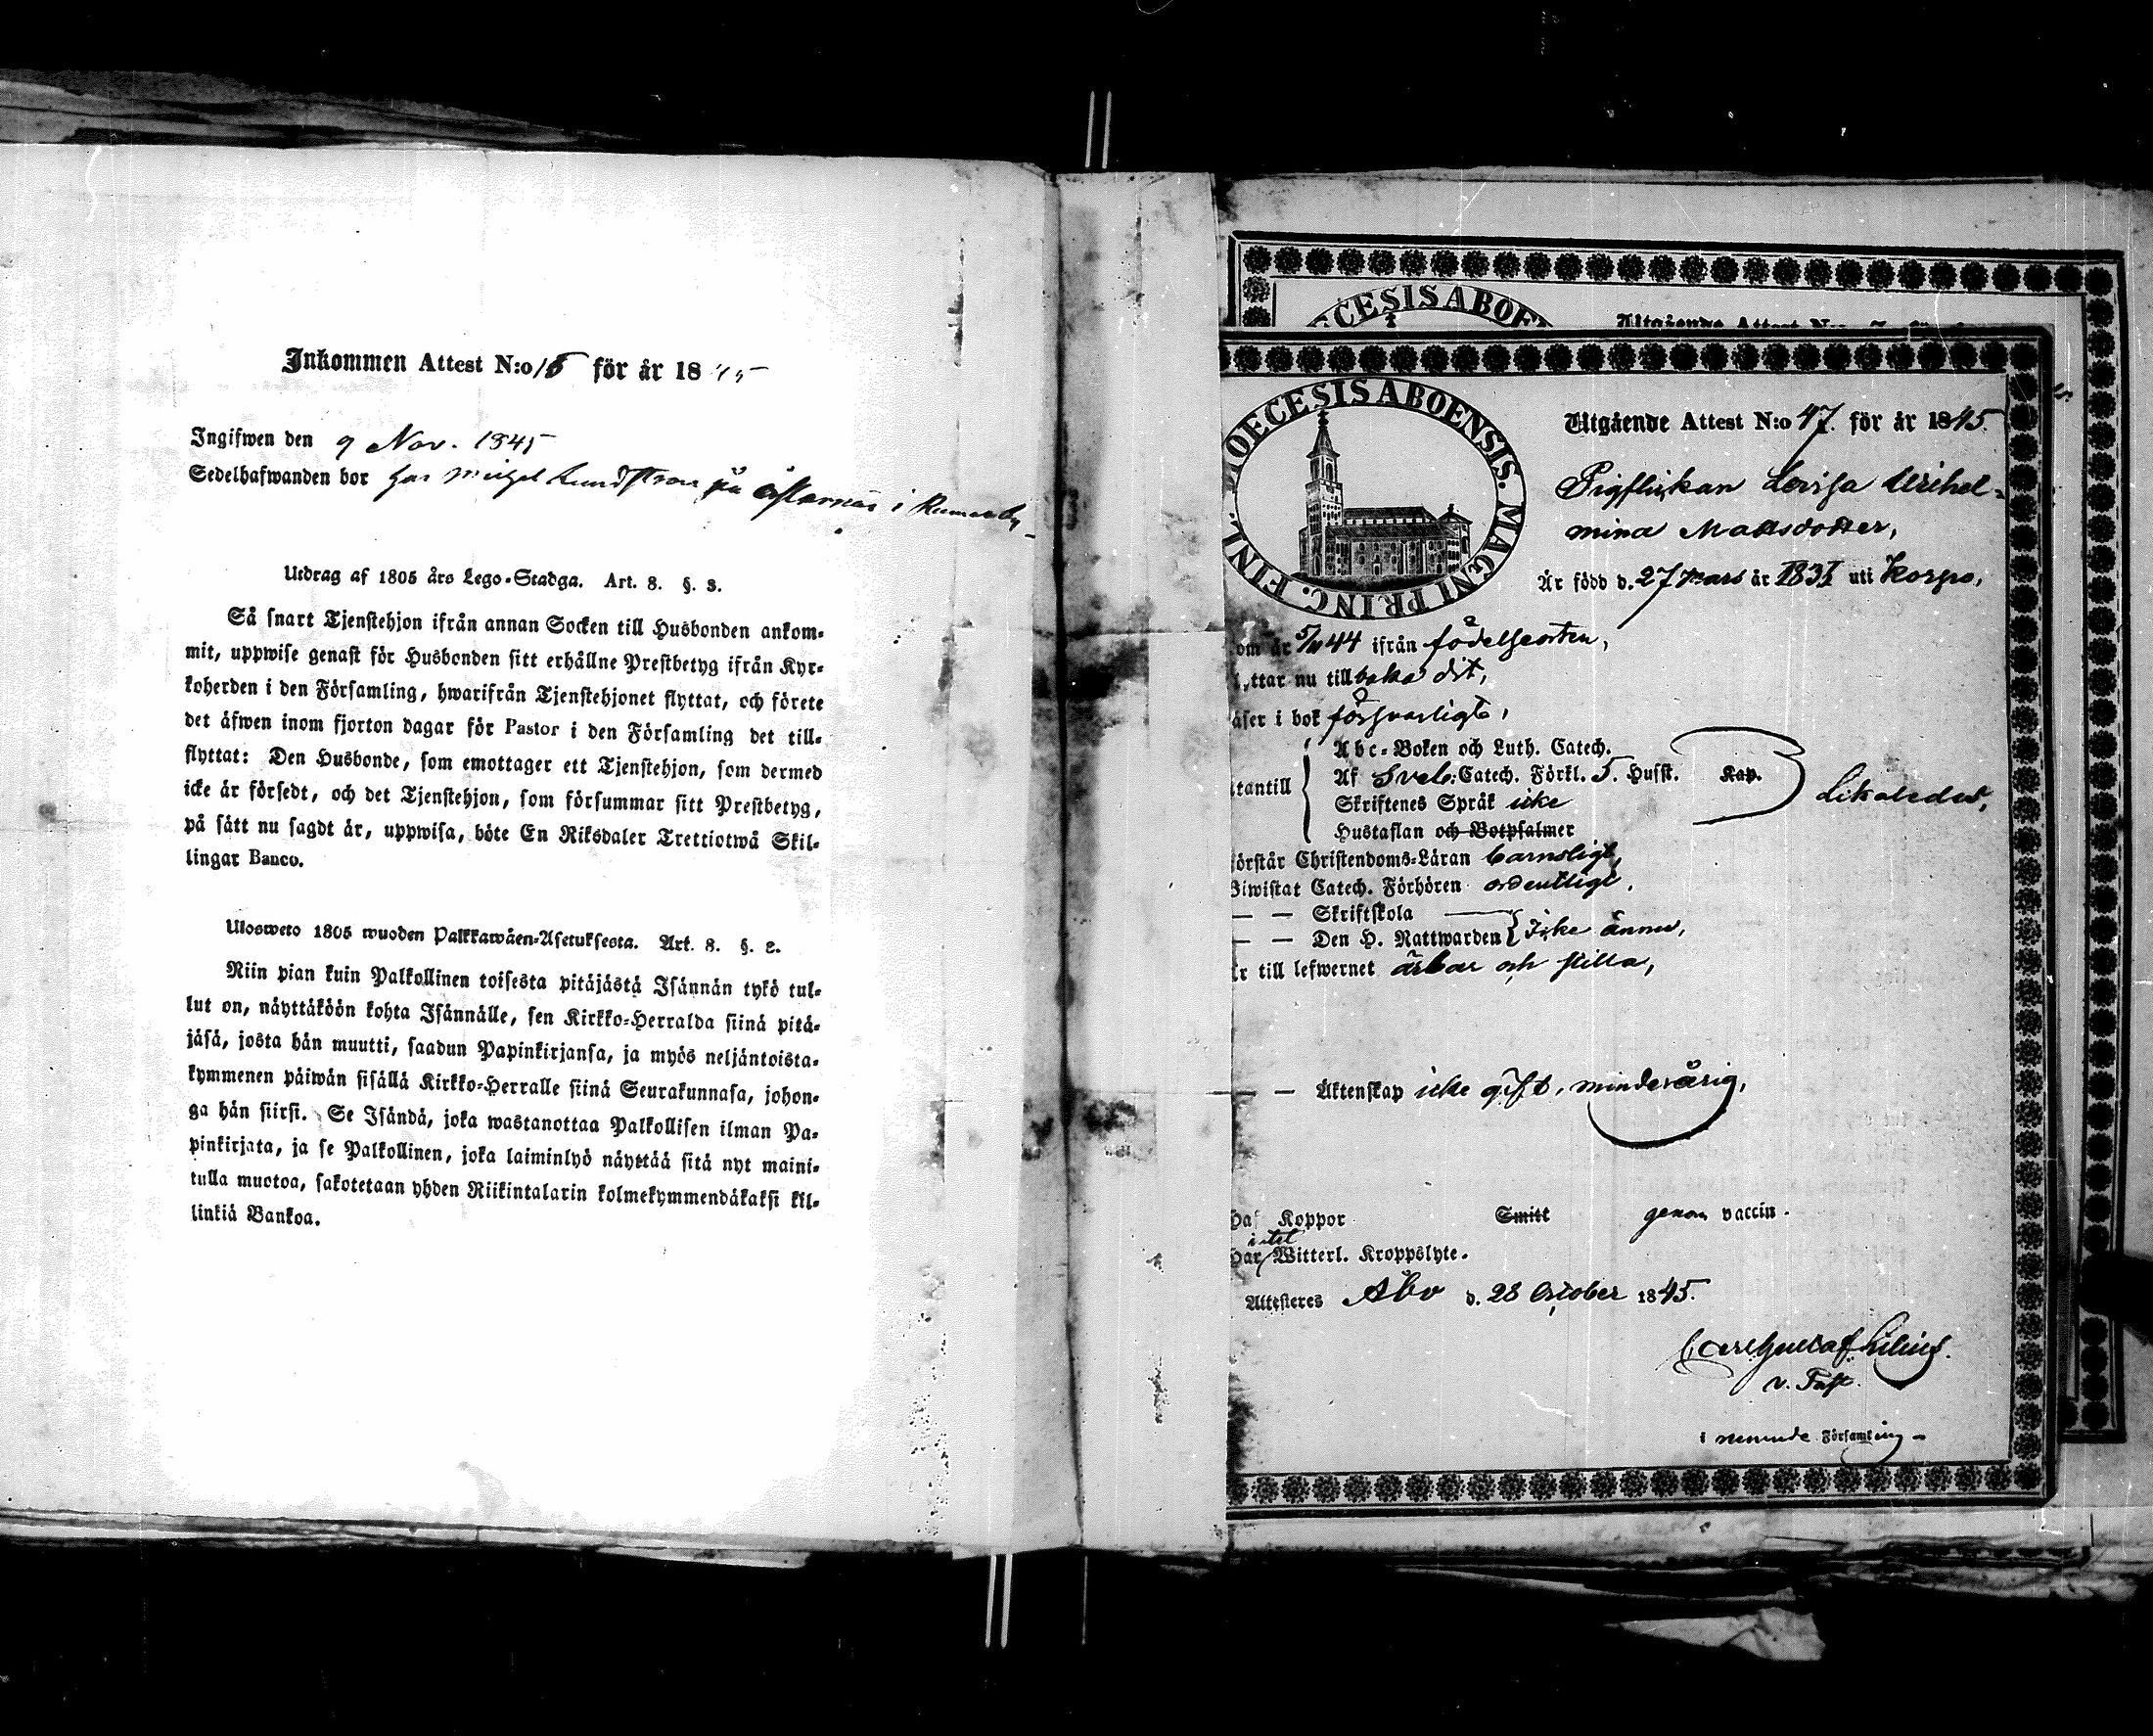 Inkommen Attest N:o 15 för år 1845
Ingifwen den 9 Nov. 1845
Sedelhafwanden bor hos Michel Lundström på i
Utdrag af 1805 års Lego-Stadga. Art. 8. §. 3.
Så snart Tjenstehjon ifrån annan Socken till Husbonden ankom-
mit, uppwise genast för Husbonden sitt erhållne Prestbetyg ifrån Kyr-
koherden i den Församling, hwarifrån Tjenstehjonet flyttat, och förete
det äfwen inom fjorton dagar för Pastor i den Församling det till-
flyttat: Den Husbonde, som emottager ett Tjenstehjon, som dermed
icke är försedt, och det Tjenstehjon, som försummar sitt Prestbetyg,
på sätt nu sagdt är, uppwisa, böte En Riksdaler Trettiotwå Skil-
lingar Banco.
Ulosweto 1805 wuoden Palkkawäen-Asetuksesta. Art. 8. §. 2.
Niin pian kuin Palkollinen toisesta pitäjästä Isännän tykö tul-
lut on, näyttäköön kohta Isännälle, sen Kirkko-Herralda siinä pitä-
jäsä, josta hän muutti, saadun Papinkirjansa, ja myös neljäntoista-
kymmenen päiwän sisällä Kirkko-Herralle siinä Seurakunnasa, johon-
ga hän siirsi. Se Isändä, joka wastanottaa Palkollisen ilman Pa-
pinkirjata, ja se Palkollinen, joka laiminlyö näyttää sitä nyt maini-
tulla muotoa, sakotetaan yhden Riikintalarin kolmekymmendäkaksi kil-
linkiä Bankoa.
CESIS ABOEN
Utgående Attest N:o
DIOECESIS ABOENSIS. MAGNI PRINC. FINL.
Utgående Attest N:o 47. för år 1845.
Pigflickan Lovisa Wilhel-
mina Mattsdotter,
Är född d. 27 Mars år 1831 uti Korpo,
om år 5/11 44 ifrån födelseorten,
yttar nu tillbaka dit,
äser i bok försvarligt,
Abc-Boken och Luth. Catech.
tantill Af Sveb: Catech. Förkl. 5. Husst. Kap. Likaledes,
Skriftenes Språk icke
Hustaflan och Botpsalmer
örstår Christendoms-Läran barnsligt,
Biwistat Catech. Förhören ordentligt,
— — Skriftskola
— — Den H. Nattwarden Icke ännu,
r till lefwernet ärbar och stilla,
— — Äktenskap icke gift, minderårig,
Haf Koppor Smitt genom vaccin.
intet
Har Witterl. Kroppslyte.
Attesteres Åbo d. 28 October 1845.
Carl Gustaf Lilius.
v. Past.
i nemnde Församling